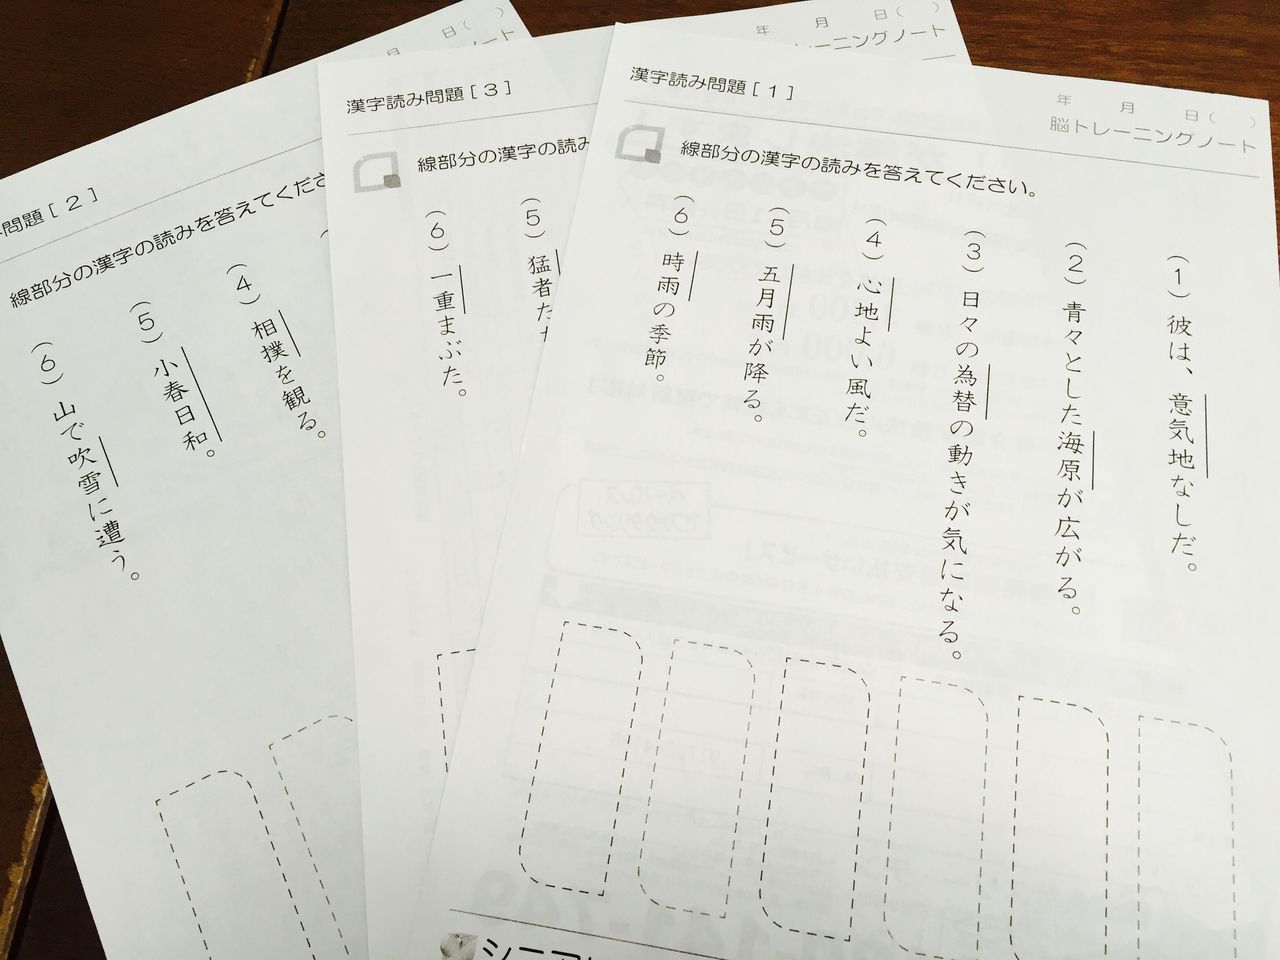 漢字読み問題[1]
年 月 日( )
脳トレーニングノート
線部分の漢字の読みを答えてください。
(1)彼は、意気地なしだ。
(2)青々とした海原が広がる。
(3)日々の為替の動きが気になる。
(4)心地よい風だ。
(5)五月雨が降る。
(6)時雨の季節。
漢字読み問題[3]
年 月 日( )
レーニングノート
線部分の漢字の読み
(5)猛者た
(6)一重まぶた。
問題[2]
月 日( )
線部分の漢字の読みを答えてくださ
(4)相撲を観る。
(5)小春日和。
(6)山で吹雪に遭う。